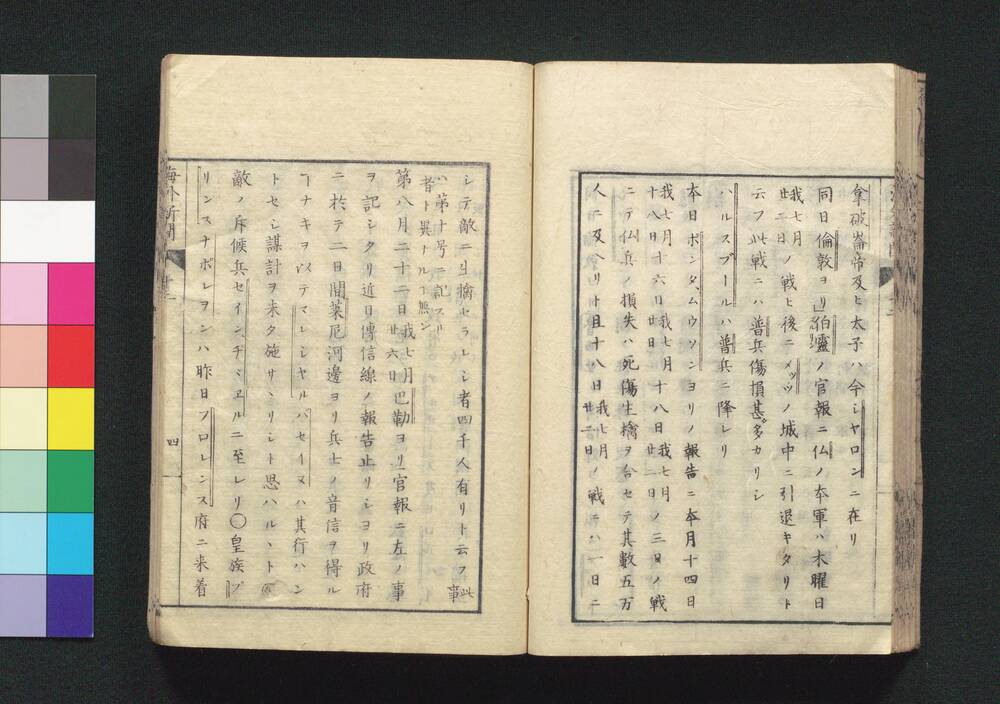 拿破崙帝及ヒ太子ハ今シヤロンニ在リ
同日倫敦ヨリ伯靈ノ官報ニ仏ノ本軍ハ木曜日
我七月廿二日ノ戦ヒ後ニメッツノ城中ニ引退キタリト
云フ此戦ニハ普兵傷損甚タ多カリシ
ハルスブールハ普兵ニ降レリ
本日ボンタ、ムウソンヨリノ報告ニ本月十四日
我七月十八日十六日我七月廿日十八日我七月廿二日ノ三日ノ戦
ニテ仏兵ノ損失ハ死傷生擒ヲ合セテ其數五万
人ニ及ヘリト且十八日我七月廿二日ノ戦ニハ一日ニ
シテ敵ニ生擒セラレシ者四千人有リト云フ此事
ハ第十号ニ記スル者ト異ナルヿ無シ
第八月二十二日我七月廿六日巴勒ヨリ官報ニ左ノ事
ヲ記シタリ近日傳信線ノ報告止リシヨリ政府
ニ於テ二日間葉尼河邊ヨリ兵士ノ音信ヲ得ル
ヿナキヲ以テマレシヤルバセイヌハ其行ハン
トセシ謀計ヲ未タ施サヽリシト思ハルヽト
敵ノ斥候兵セイン、チミヱルニ至レリ〇皇族プ
リンスナポレヲンハ昨日フロレンス府ニ来着
海外新聞
四